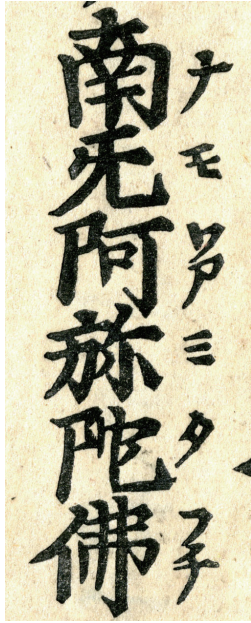 南无阿弥陀佛
ナモアミタフチ